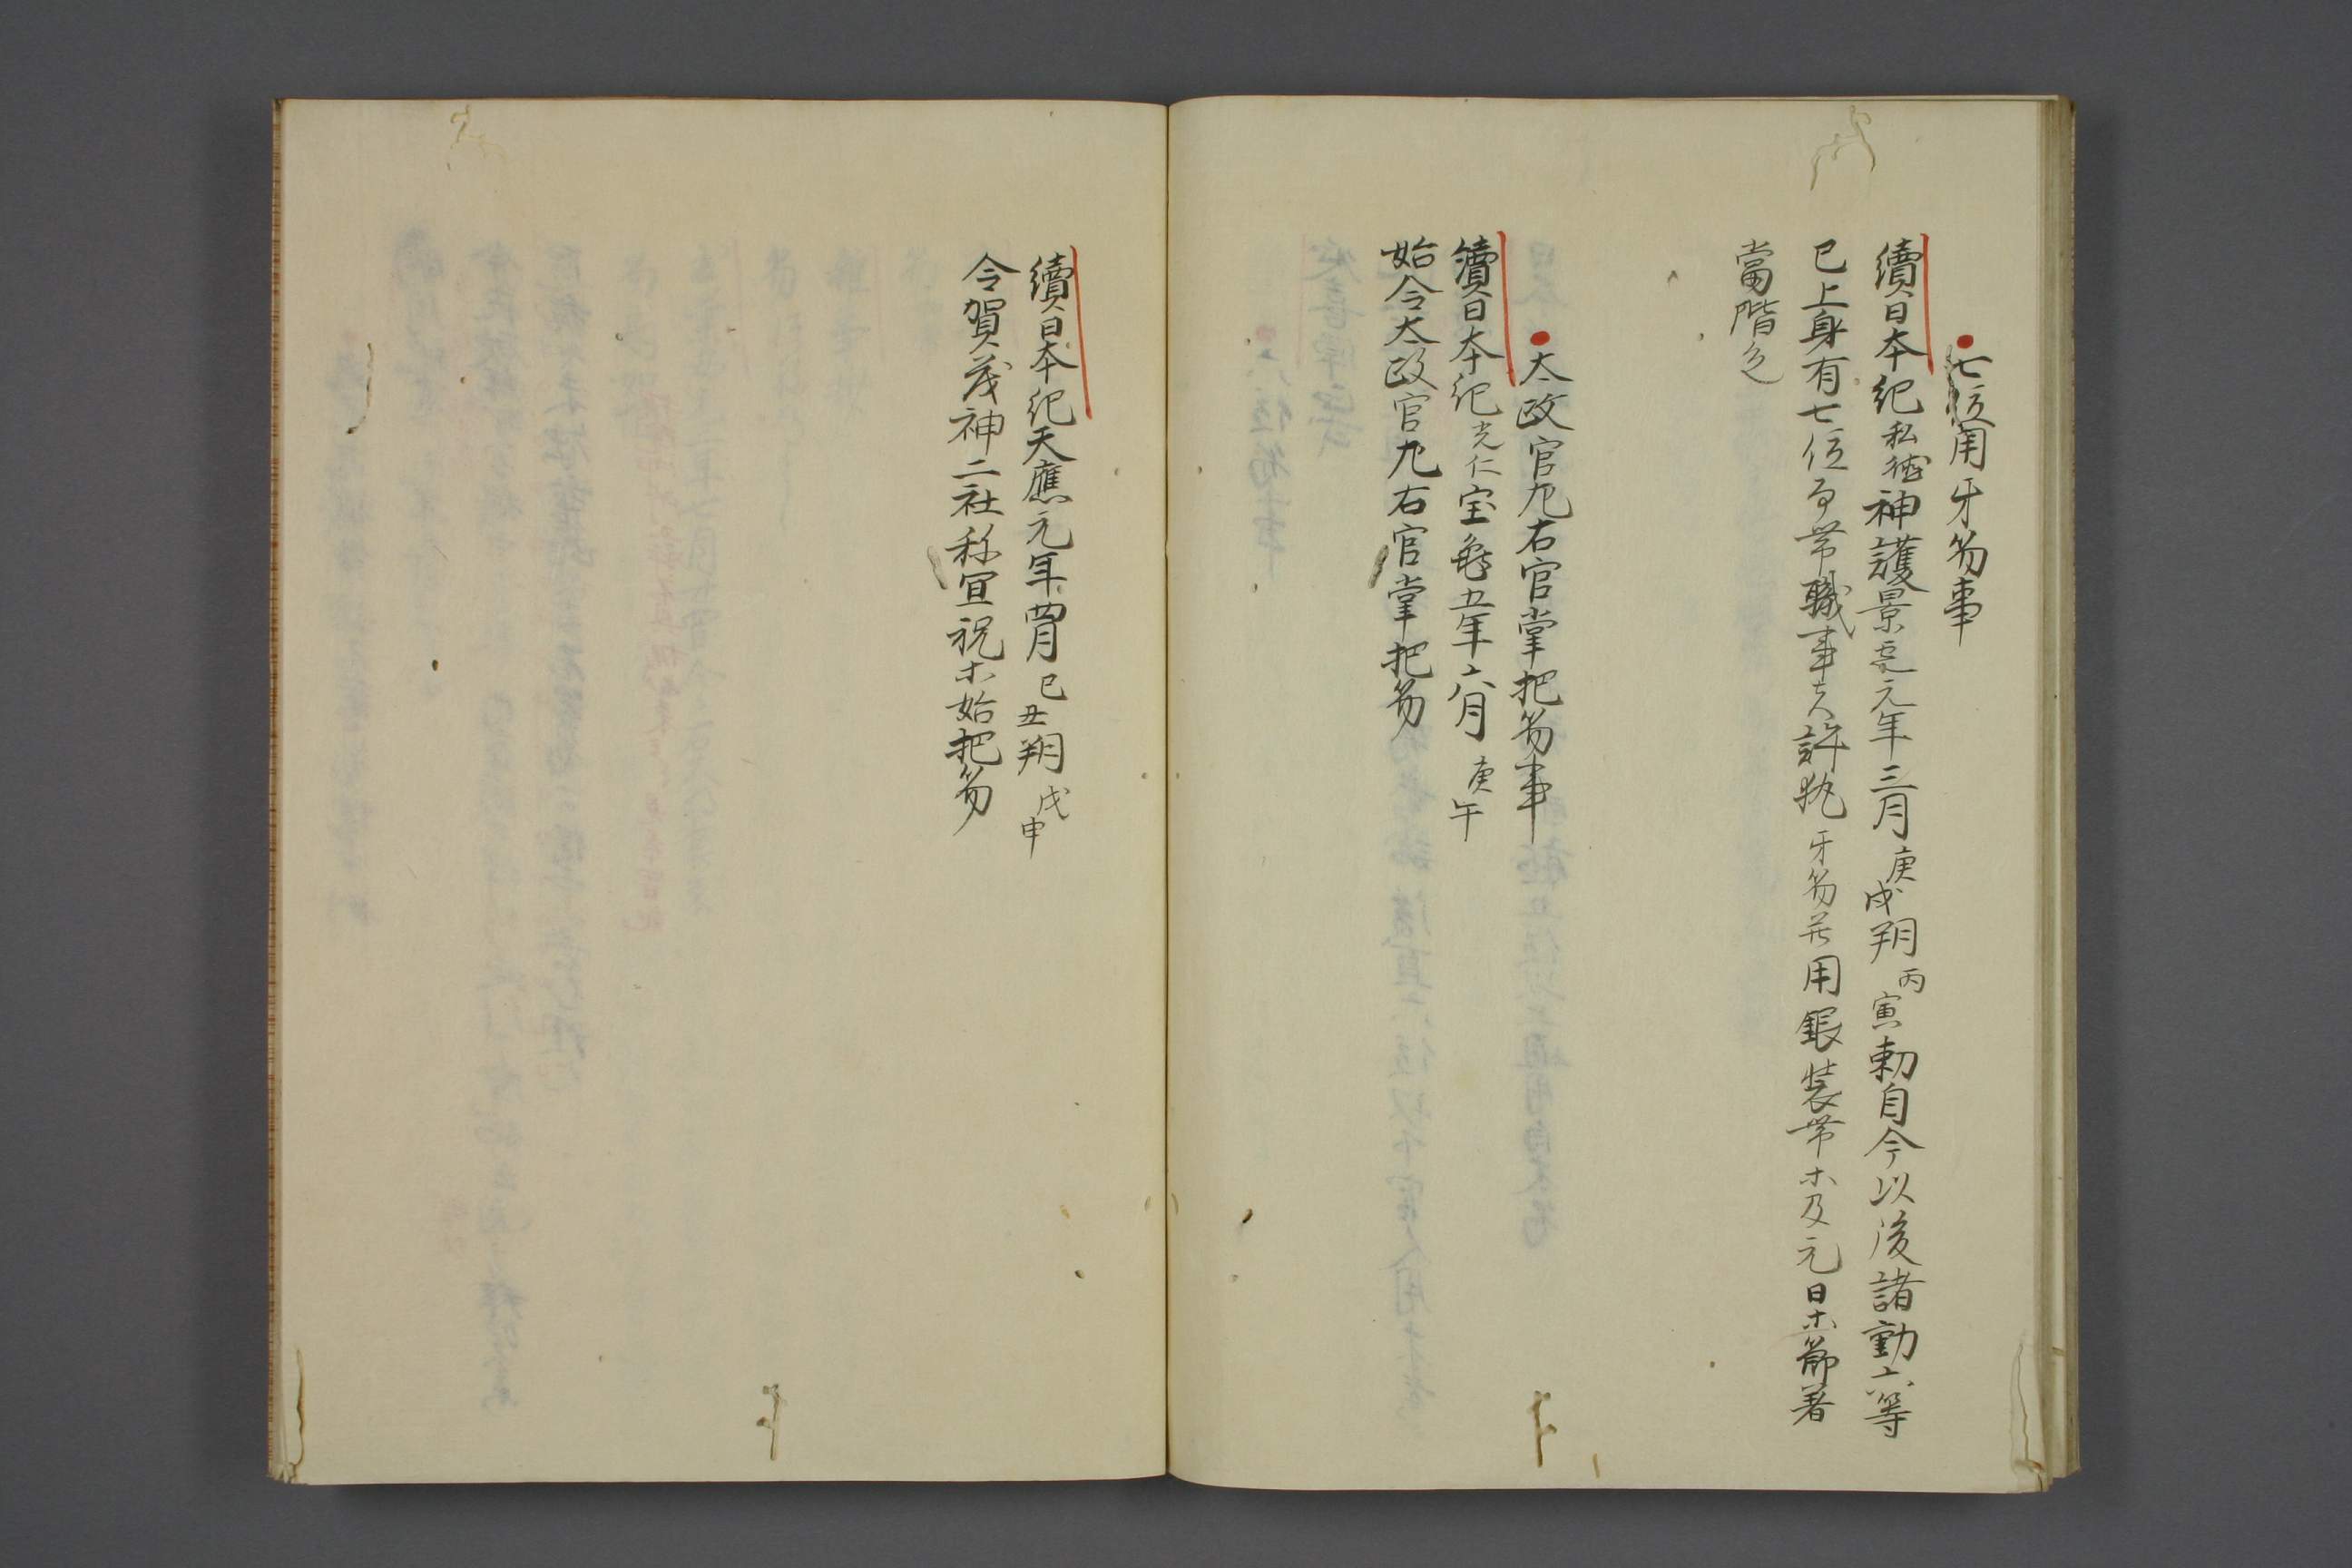 七位用牙笏事
續日本紀私徳神護景雲元年三月庚戌朔丙寅勅自今以後諸勳六等
已上身有七位而帶職事者許執牙笏并用銀装帶木及元日木節著
當階色
太政官九右官掌把笏事
續日本紀光仁宝亀五年六月庚午
始令太政官九右官掌把笏
續日本紀天應元年四月己丑朔戊申
令賀茂神二社祢宜祝木始把笏